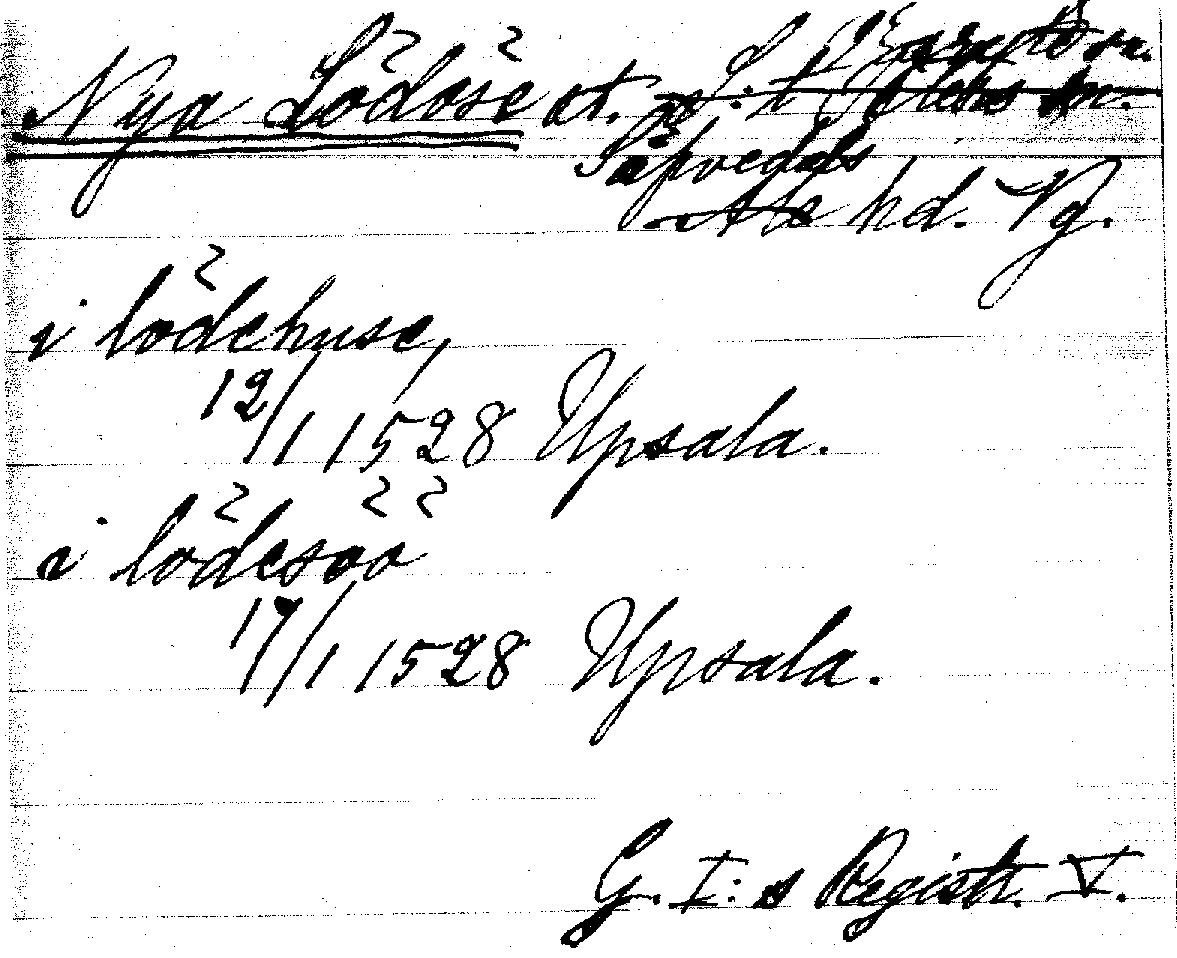 Nya Lödöse st.
Sävedals
Ale hd. Vg.
i lödehuse,
12/1 1528 Upsala.
i lödesöö
17/1 1528 Upsala.
G. I:s Registr. V.